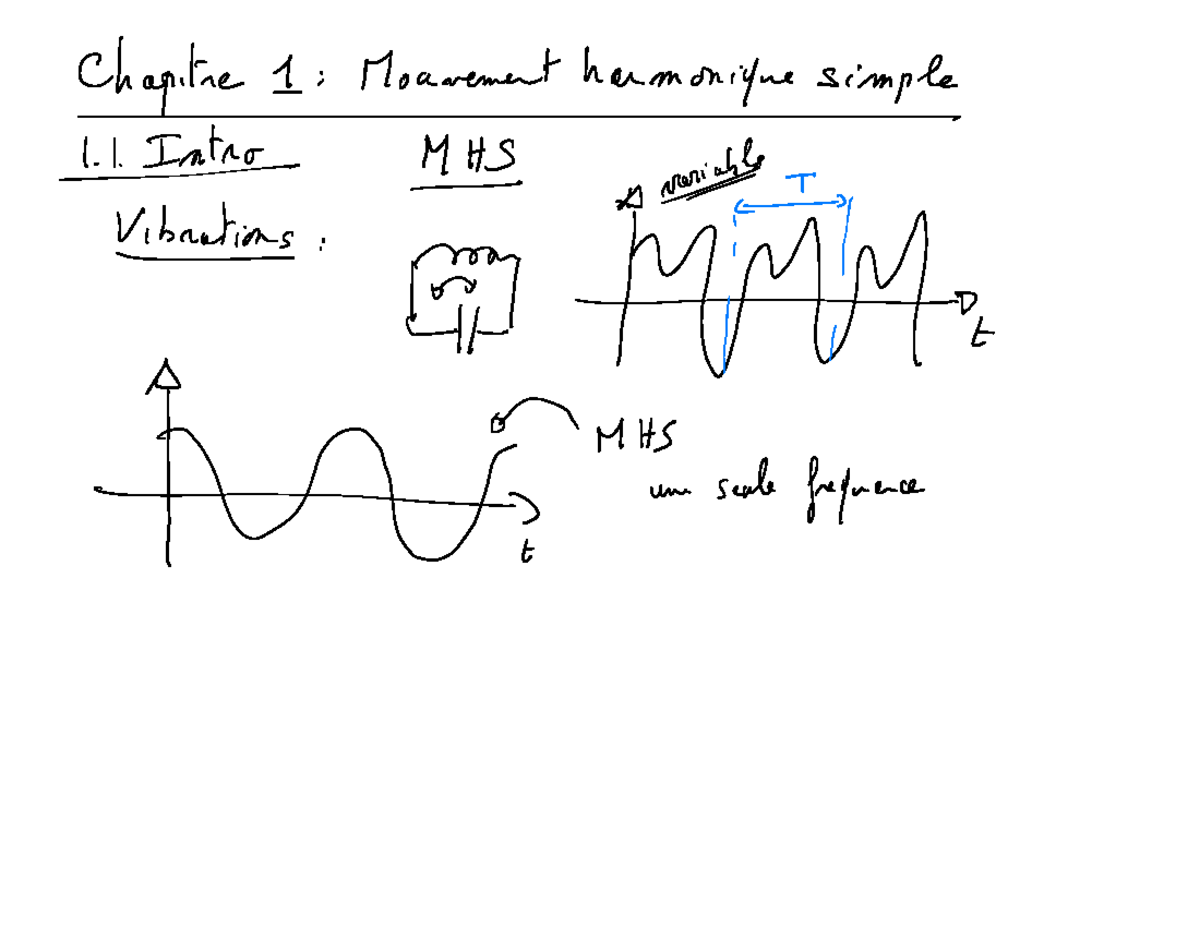 Chapitre 1 : Mouvement harmonique simple
1.1. Intro
MHS
Vibrations :
variable
T
t
t
MHS
une seule frequence